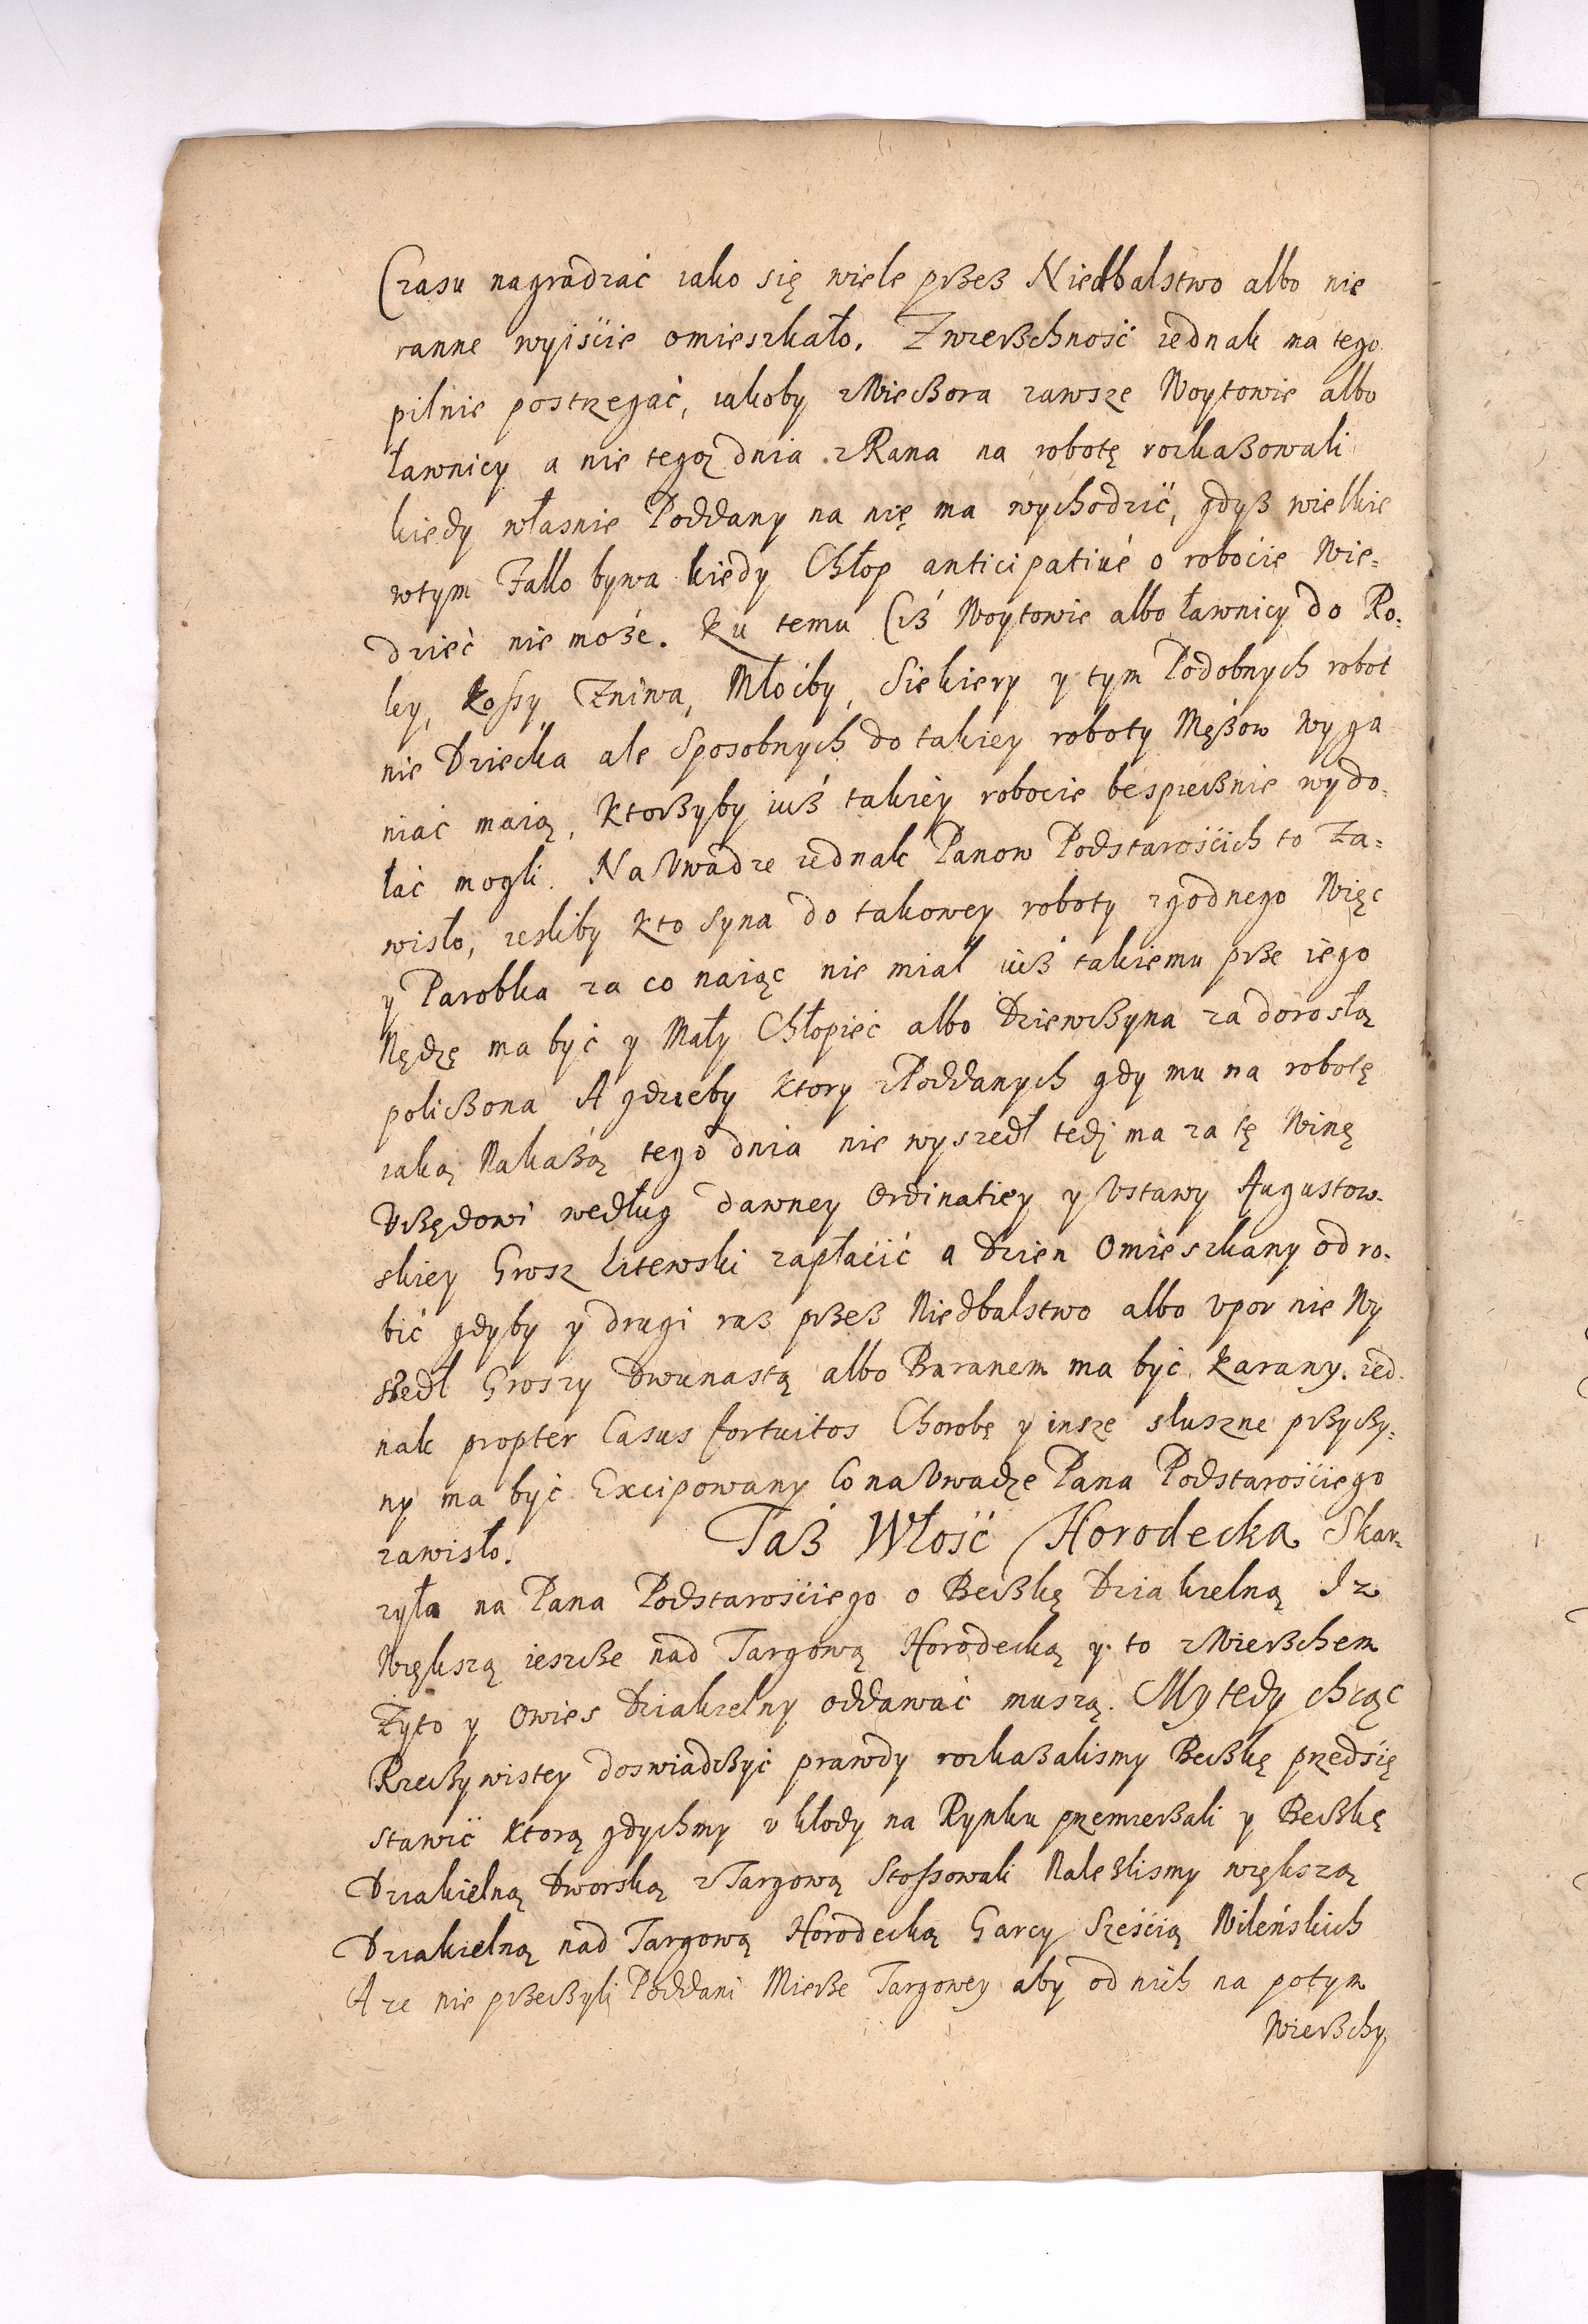 Czasu nagradzać iako się wiele przez Niedbalstwo albo nie
ranne wyiscie omieszkało. Zwierzchność iednak ma tego
pilnie postrzegać, iakoby zWieczora zawsze Woytowie albo
Ławnicy a nie tegoz dnia zRana na robotę rozkazowali
kiedy własnie Poddany na nię ma wychodzić, gdyz wielkie
wtym Zallo bywa kiedy Chłop anticipative o robocie Wie-
dzieć nie może. Ku temu Ciż Woytowie albo Ławnicy do Ro-
ley, Kossy Zniwa, Młoćby, Siekiery y tym Podobnych robot
nie Dziecka ale Sposobnych do takiey roboty Mężow Wyga
niać maią, Ktorzyby iuż takiey robocie bespiecznie wydo-
łać mogli. Na Uwadze iednak Panow Podstarościch to Za-
wisło, iesliby Kto Syna do takowey roboty zgodnego Więc
y Parobka za co naiąc nie miał iuż takiemu prze iego
Nędzę ma być y Mały Chłopieć albo Dziewczyna za dorosłą
policzona A gdzieby Ktory zPoddanych gdy mu na robotę
iaką Nakażą tego dnia nie wyszedł tedj ma za tę Winę
Urzędowi według dawney Ordinatiey y Ustawy Augustow-
skiey Grosz Litewski zapłacić a Dzien Omieszkany odro-
bić gdyby y drugi raz przez Niedbalstwo albo Upor nie Wy
szedł Groszy Dwunastą albo Baranem ma być Karany. ied-
nak propter Casus fortuitos Chorobę y insze słuszne przyczy-
ny ma być Excipowany Co na Uwadze Pana Podstarościego
zawisło. Taż Włość Horodecka Skar-
zyła na Pana Podstarościego o Beczkę Dziakielną Iz
Większą ieszcze nad Targową Horodecką y to zWierzchem
Zyto y Owies Dziakielny oddawać muszą. My tedy chcąc
Rzeczywistey doswiadczyć prawdy rozkazalismy Beczkę przedsię
stawić Ktorą gdychmy u kłody na Rynku przemierzali y Beczkę
Dziakielną Dworską zTargową Stossowali Nalezlismy większą
Dziakielną nad Targową Horodecką Garcy Sześcią Wileńskich
A ze nie przeczyli Poddani Mierze Targowey aby od nich na potym
Wierzchy